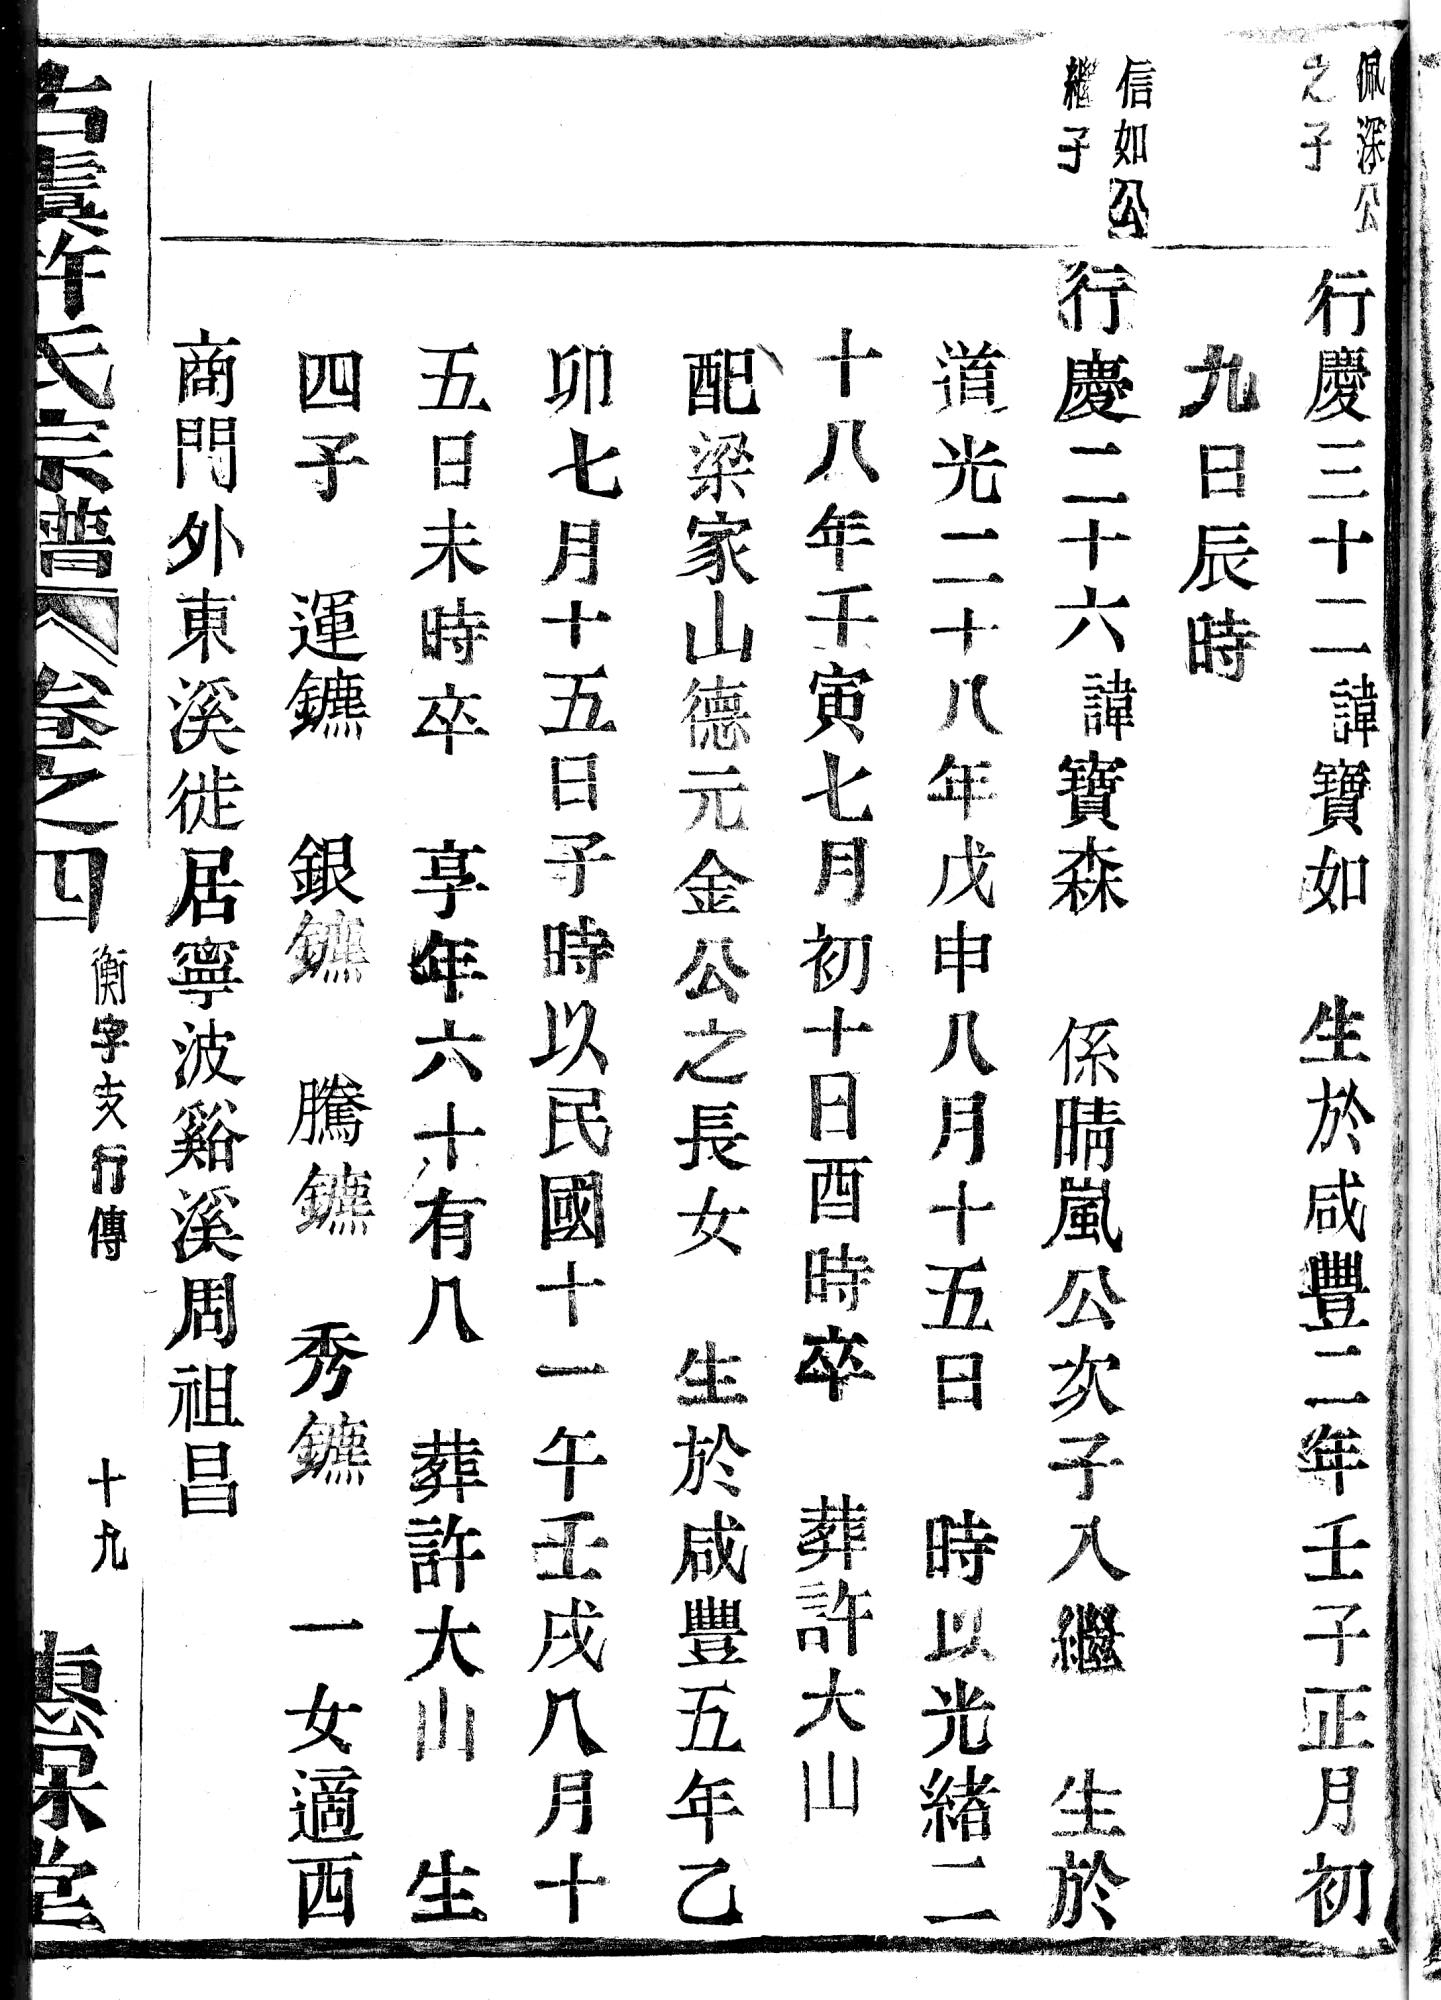 佩深公
之子
行慶三十二諱寶如 生於咸豐二年壬子正月初
九日辰時
信如公
繼子
行慶二十六諱寶森 係晴嵐公次子入繼 生於
道光二十八年戊申八月十五日 時以光緒二
十八年壬寅七月初十日酉時卒 葬許大山
配梁家山德元金公之長女 生於咸豐五年乙
卯七月十五日子時以民國十一午壬戌八月十
五日未時卒 享年六十有八 葬許大山 生
四子 運鑣 銀鑣 騰鑣 秀鑣 一女適西
商門外東溪徙居寧波谿溪周祖昌
古虞許氏宗譜 卷之四 衡字支行傳 十九 惠保堂